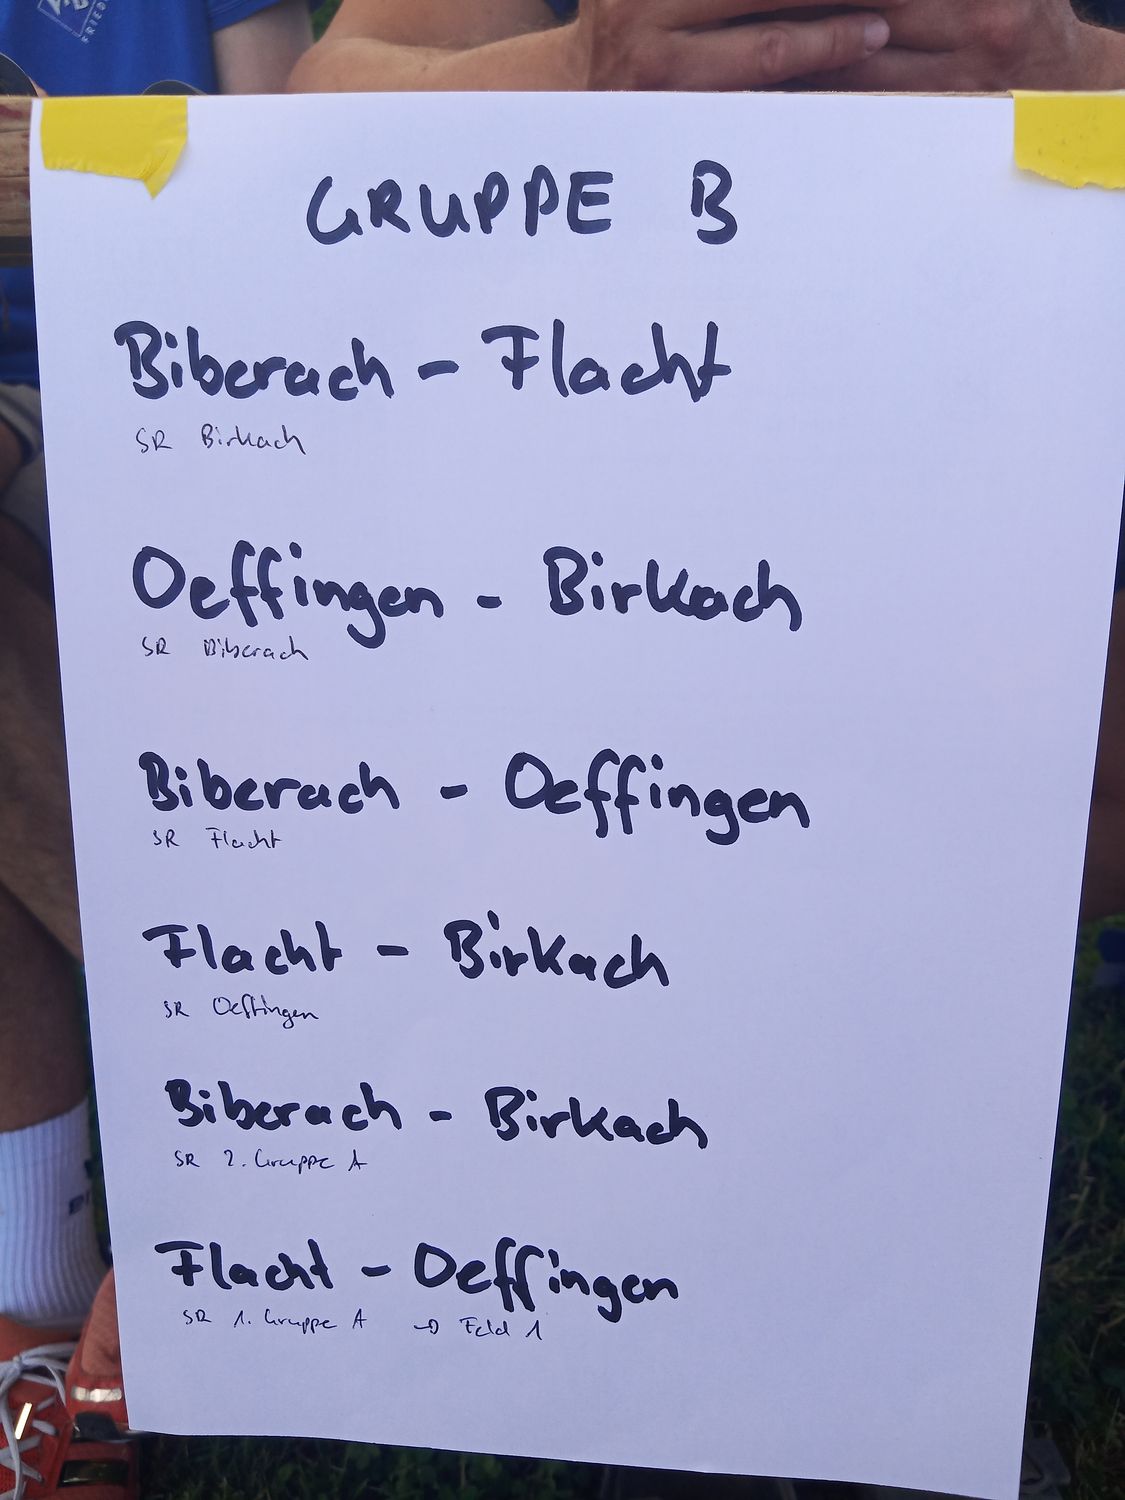 GRUPPE B
Biberach - Flacht
SR Birkach
Oeffingen - Birkach
SR Biberach
Biberach - Oeffingen
SR Flacht
Flacht - Birkach
SR Oeffingen
Biberach - Birkach
SR 2. Gruppe A
Flacht - Oeffingen
SR 1. Gruppe A → Feld 1